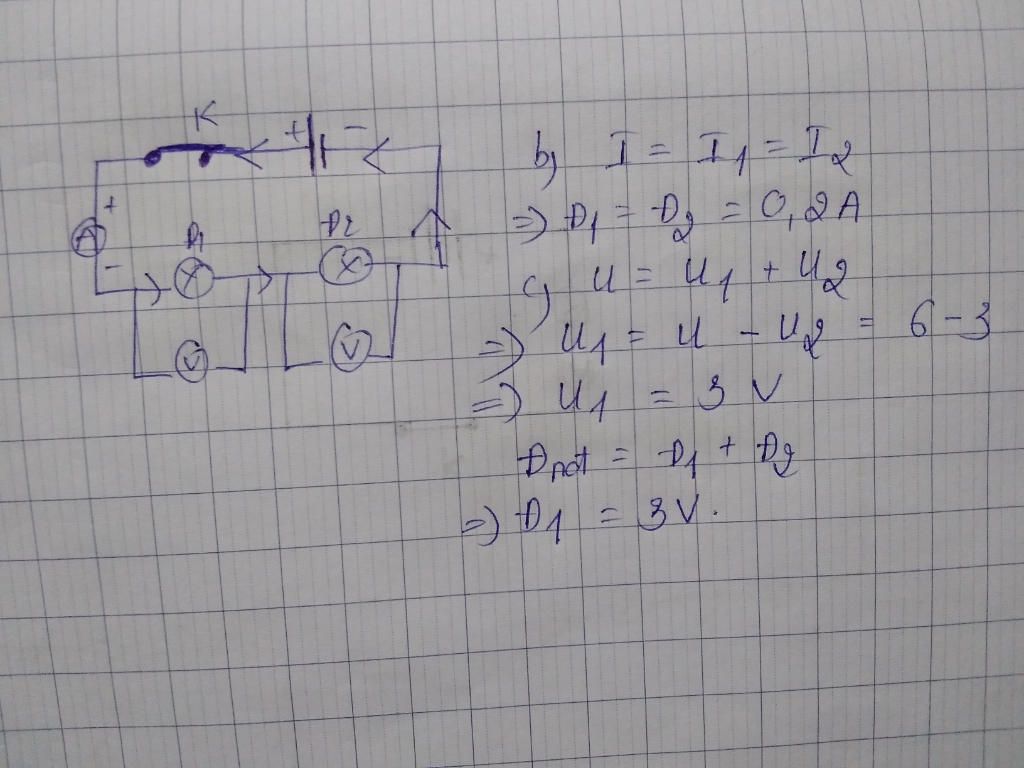 K
+ -
+
A
-
Đ1
Đ2
V
V
b) I = I1 = I2
=) Đ1 = Đ2 = 0,2A
c) U = U1 + U2
=) U1 = U - U2 = 6 - 3
=) U1 = 3 V
Đnơt = Đ1 + Đ2
=) Đ1 = 3V.